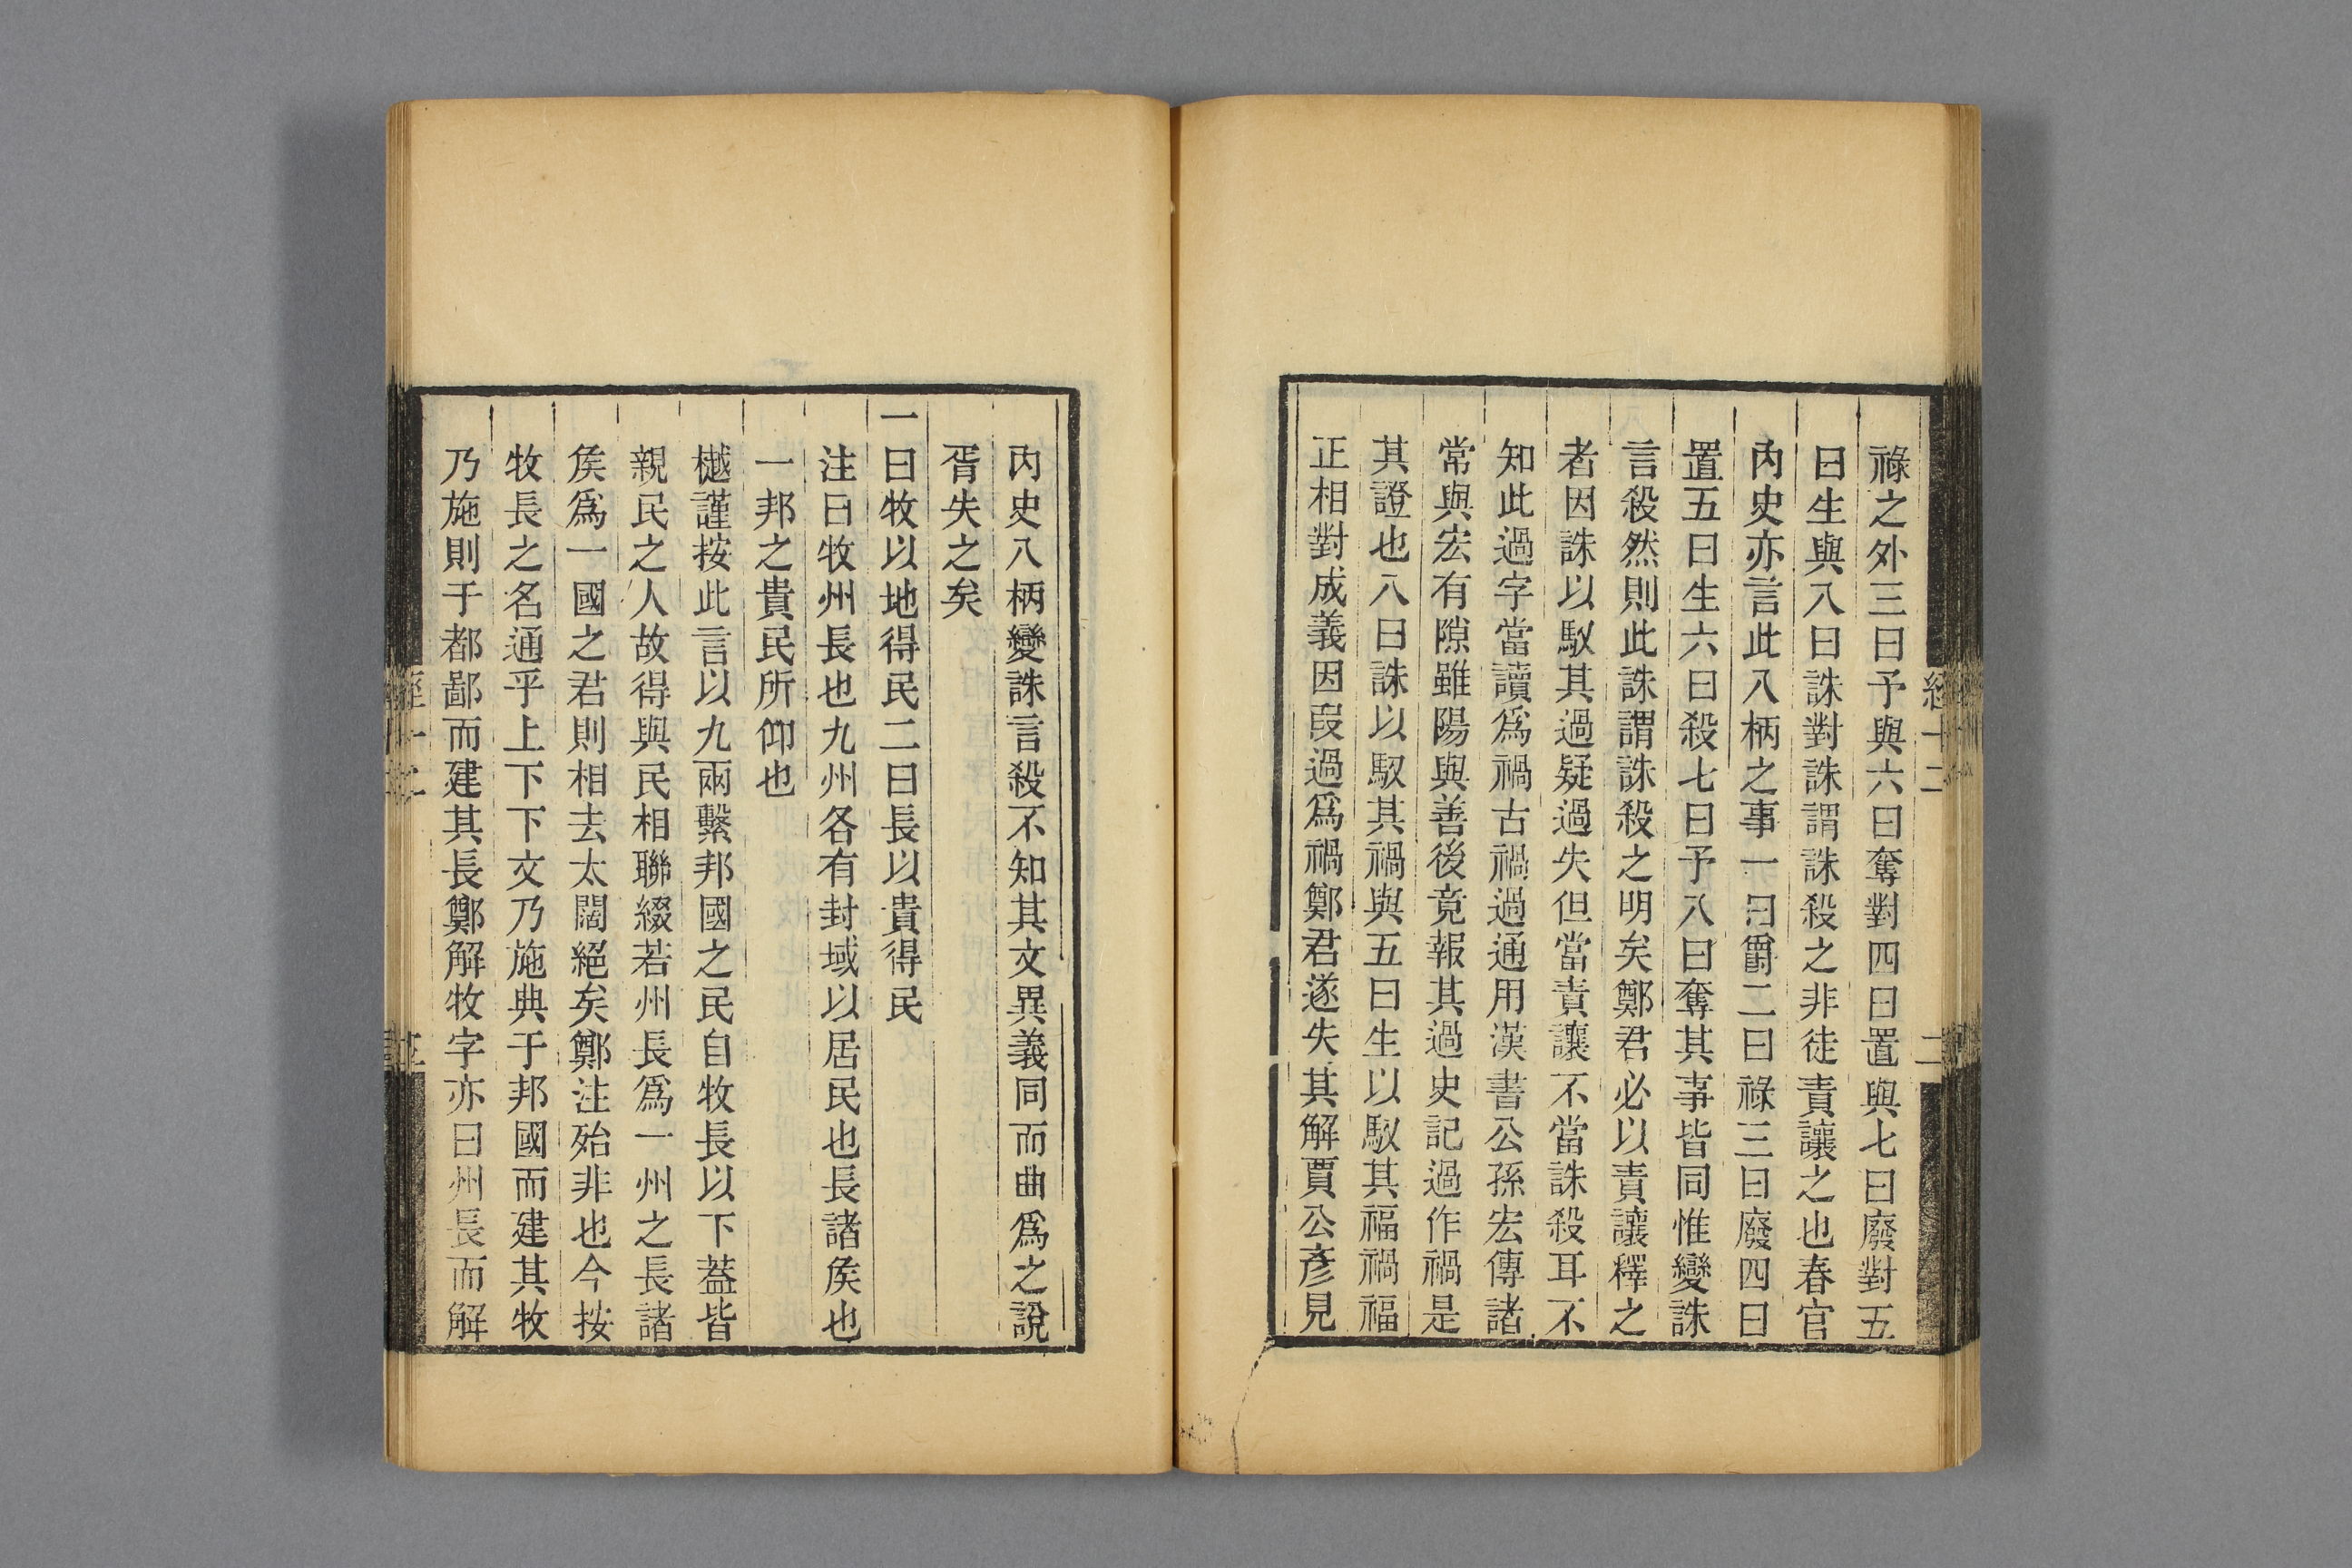 祿之外三曰予與六曰奪對四曰置與七曰廢對五
曰生與八曰誅對誅謂誅殺之非徒責讓之也春官
內史亦言此八柄之事一曰爵二曰祿三曰廢四曰
置五曰生六曰殺七曰予八曰奪其事皆同惟變誅
言殺然則此誅謂誅殺之明矣鄭君必以責讓釋之
者因誅以馭其過疑過失但當責讓不當誅殺耳不
知此過字當讀爲禍古禍過通用漢書公孫宏傳諸
常與宏有隙雖陽與善後竟報其過史記過作禍是
其證也八曰誅以馭其禍與五曰生以馭其福禍福
正相對成義因叚過爲禍鄭君遂失其解賈公彥見
經十二
二
內史八柄變誅言殺不知其文異義同而曲爲之說
胥失之矣
一曰牧以地得民二曰長以貴得民
注曰牧州長也九州各有封域以居民也長諸矦也
一邦之貴民所仰也
樾謹按此言以九兩繫邦國之民自牧長以下蓋皆
親民之人故得與民相聯綴若州長爲一州之長諸
矦爲一國之君則相去太闊絕矣鄭注殆非也今按
牧長之名通乎上下下文乃施典于邦國而建其牧
乃施則于都鄙而建其長鄭解牧字亦曰州長而解
經十二